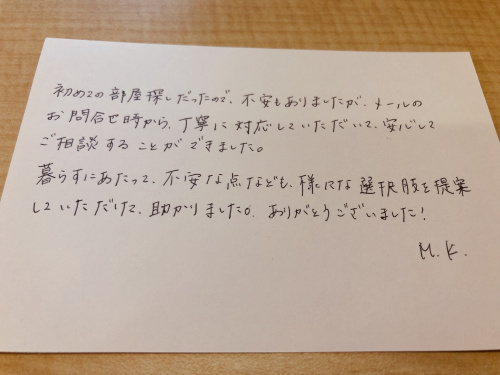 初めての部屋探しだったので、不安もありましたが、メールの
お問合せ時から、丁寧に対応していただいて、安心して
ご相談することができました。
暮らすにあたって、不安な点なども、様々な選択肢を提案
していただけて、助かりました。ありがとうございました!
M.K.